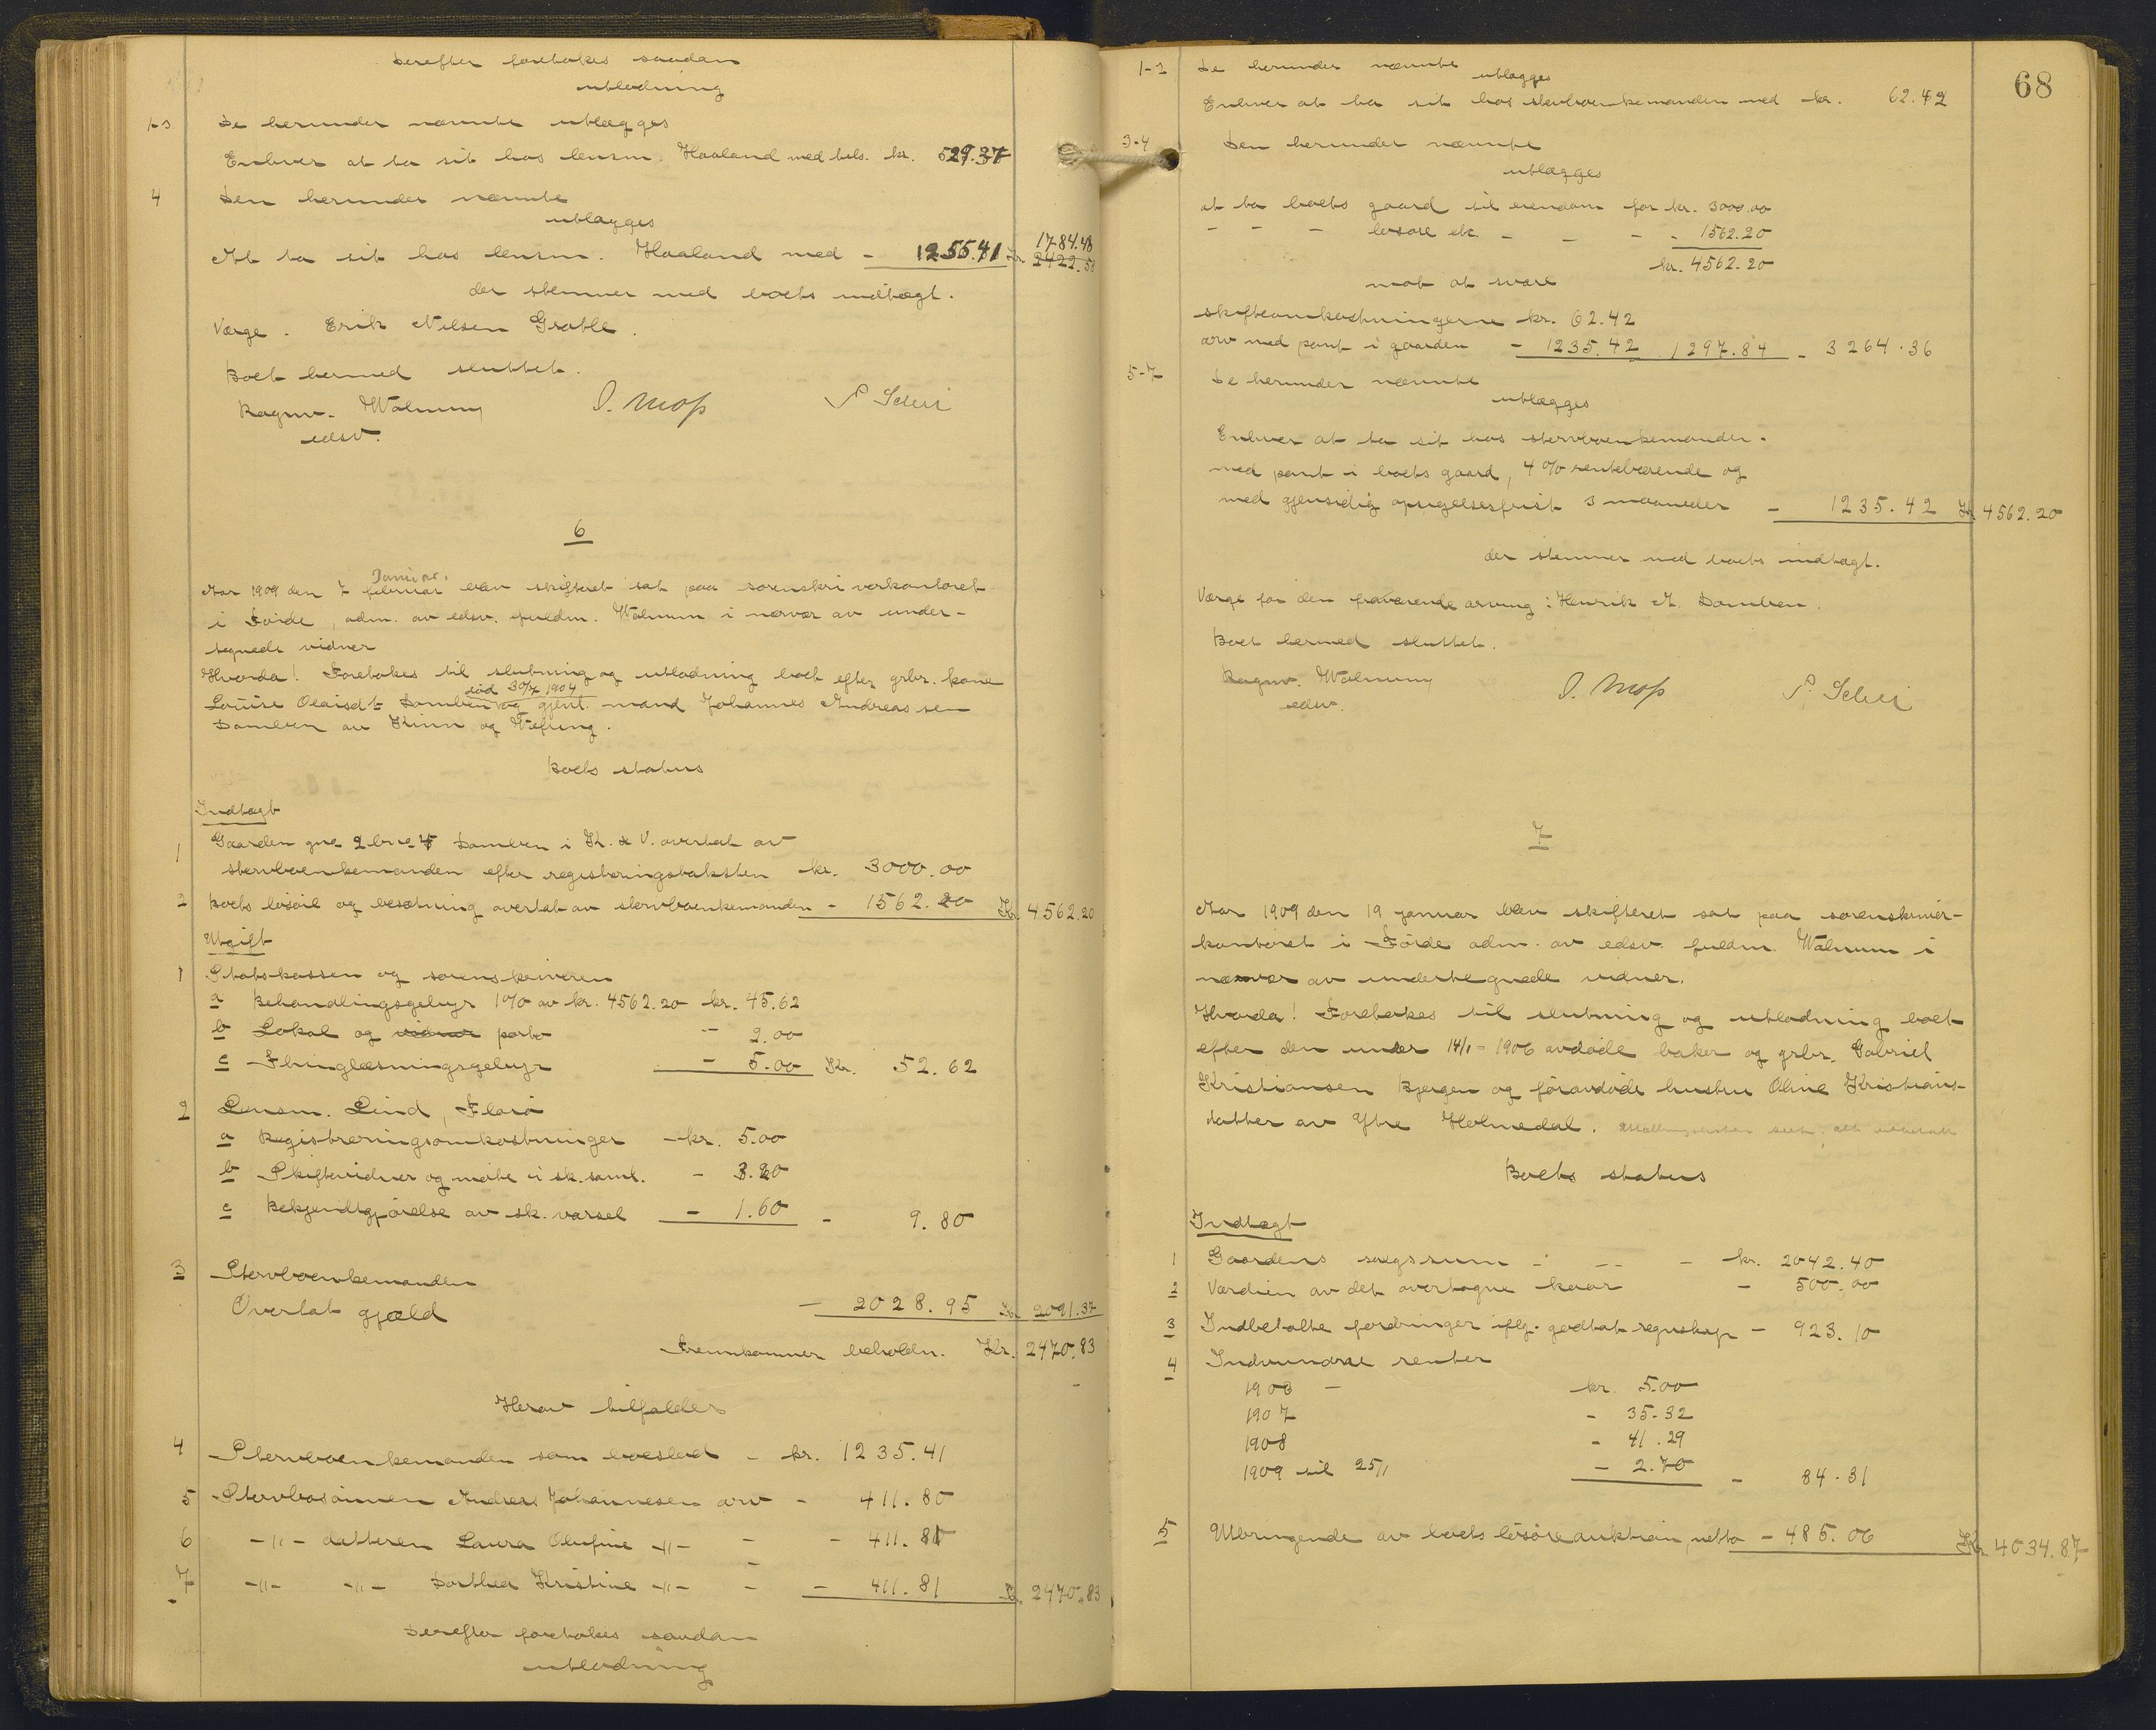 Derefter foretokes saadan
utlodning
1-3 De herunder nævnte utlægges
Enhver at ta sit hos lensm. Haaland med tils. kr. 529.37
4 Den herunder nævnte
utlægges
At ta sit hos lensm. Haaland med - 1255.41 Kr. 1784.78
2422.58
der stemmer med boets indtægt.
Værge. Erik Nilsen Grotle.
Boet hermed sluttet.
Ragnv. Walnum O. Moss P. Schei
edsv.
6
Januar.
Aar 1909 den 7 februar blev skifteret sat paa sorenskriverkontoret
i Førde, adm. av edsv. fuldm. Walnum i nærvær av under-
tegnede vidner
Hvorda! Foretokes til slutning og utlodning boet efter grbr. kone
død 30/7 1904
Louise Olaisdt Domben og gjenl. mand Johannes Andreassen
Domben av Kinn og Vefring.
Boets status
Indtægt
1 Gaarden gno 2 bno 4 Domben i K. & V. overtat av
stervboenkemanden efter registreringstaksten kr. 3000.00
2 Boets løsøre og besætning overtat av stervboenkemanden - 1562.20 Kr. 4562.20
Utgift
1 Statskassen og sorenskriveren
a Behandlingsgebyr 1% av kr. 4562.20 kr. 45.62
b Lokal og vidner porto - 2.00
c Thinglæsningsgebyr - 5.00 Kr. 52.62
2 Lensm. Lind, Florø
a Registreringsomkostninger - kr. 5.00
b Skiftevidner og møte i sk. saml. - 3.20
c Bekjendtgjørelse av sk. varsel - 1.60 - 9.80
3 Stervboenkemanden
Overtat gjæld - 2028.95 Kr. 2091.37
Fremkommer beholdn. Kr. 2470.83
Herav tilfalder
4 Stervboenkemanden som boeslod - kr. 1235.41
5 Stervbosønnen Andreas Johannesen arv - 411.80
6 -"- datteren Laura Olufine -"- - - 411.81
7 -"- -"- Dorthea Kristine -"- - - 411.81 Kr. 2470.83
Derefter foretokes saadan
utlodning
68
1-2 De herunder nævnte
utlægges
Enhver at ta sit hos stervboenkemanden med kr. 62.42
3-4 Den herunder nævnte
utlægges
at ta boets gaard til eiendom for kr. 3000.00
- - - løsøre etc. - - - - 1562.20
kr. 4562.20
mot at svare
skifteomkostningerne kr. 62.42
arv med pant i gaarden - 1235.42 1297.84 - 3264.36
5-7 De herunder nævnte
utlægges
Enhver at ta sit hos stervboenkemanden.
med pant i boets gaard, 4% rentebærende og
med gjensidig opsigelsesfrist 3 maaneder - 1235.42 Kr 4562.20
der stemmer med boets indtægt.
Værge for den fraværende arving: Henrik A. Domben.
Boet hermed sluttet.
Ragnv. Walnum O. Moss P. Schei
edsv.
7
Aar 1909 den 19 januar blev skifteret sat paa sorenskriver-
kontoret i Førde adm. av edsv. fuldm. Walnum i
nærvær av undertegnede vidner.
Hvorda! Foretokes til slutning og utlodning boet
efter den under 14/1 - 1906 avdøde baker og grbr. Gabriel
Kristiansen Bjergen og foravdøde hustru Oline Kristians-
datter av Ytre Holmedal.
Boets status
Indtægt
1 Gaardens salgssum - - - kr. 2042.40
2 Værdien av det overtagne kaar - 500.00
3 Indbetalte fordringer iflg. godtat regnskap - 923.10
4 Indvundne renter
1903 - kr. 5.00
1907 - 35.32
1908 - 41.29
1909 til 25/1 - 2.70 - 84.31
5 Utbringende av boets løsøreauktion, netto - 485.06 Kr 4034.87